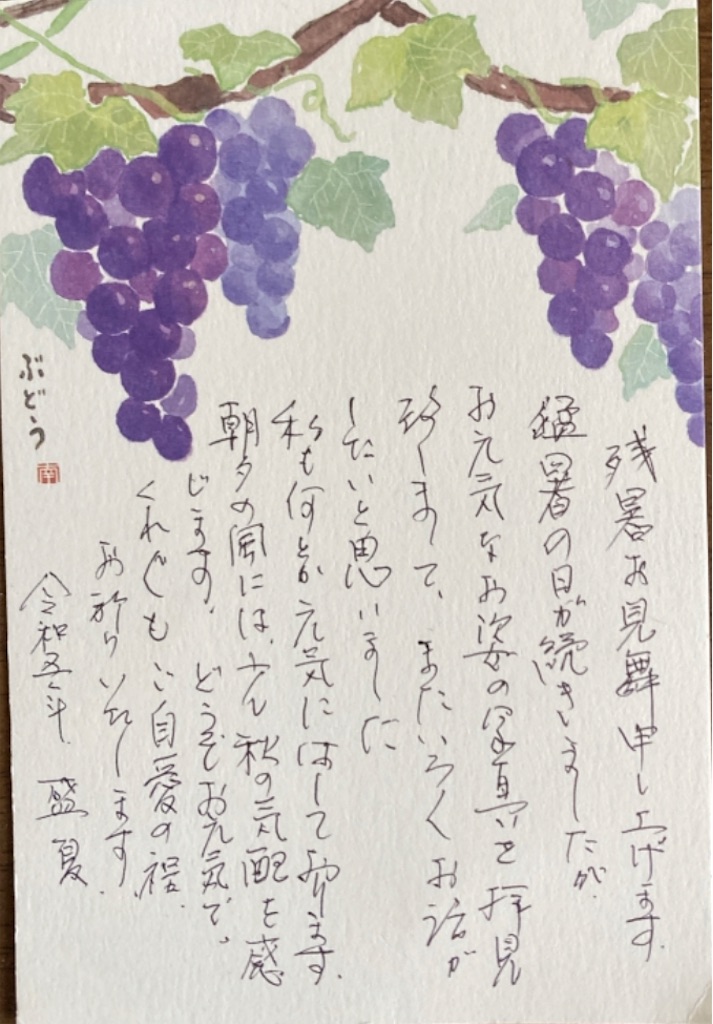 残暑お見舞申し上げます.
猛暑の日が続きましたが.
お元気なお姿の写真を拝見
致しまして、またいろ〱お話が
したいと思いました
私も何とか元気にはして居ります.
朝夕の風には、秋の気配を感
じます. どうぞお元気で。
くれ〲もご自愛の程.
お祈りいたします.
令和五年. 盛夏.
ぶどう